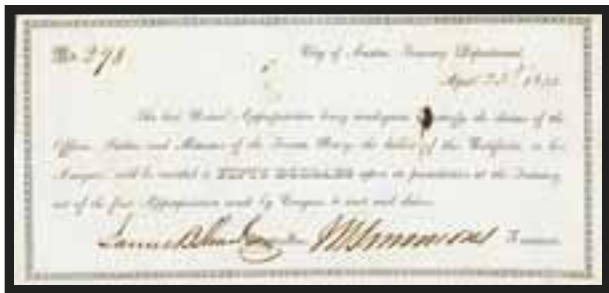 No. 298 City of Austin, Treasury Department,
April 23
The last Appropriation being to satisfy the claims of the
Officers, Sailors and Marines of the Texas Navy, the holder of this Certificate, or his
Assigns, will be entitled to FIFTY DOLLARS upon its presentation at the Treasury
out of the first Appropriation made by Congress to meet said claims.
James B. Shaw W Simmons Treasurer